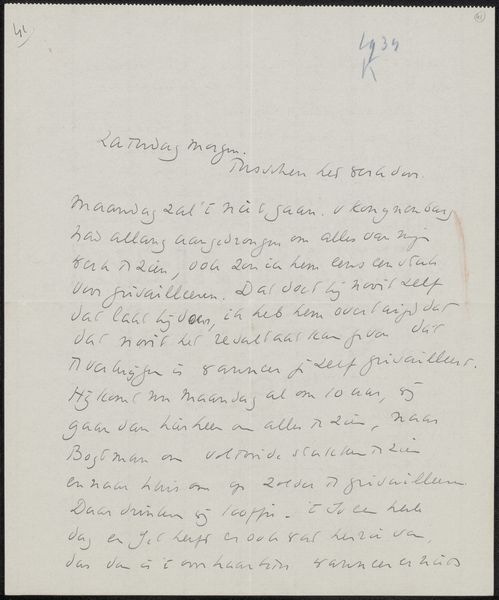 41
41
1934
K
Zaterdag morgen.
Tusschen het werk door.
Maandag zal 't niet gaan. v Konynenburg
had allang aangedrongen om alles van mijn
werk te zien, ook zou ik hem eens een stuk
voor grisailleeren. Dat doet hij nooit zelf
dat laat hij doen, ik heb hem overtuigd dat
dat nooit het resultaat kan geven dat
te verkrijgen is wanneer je zelf grisailleert.
Hij komt nu Maandag al om 10 uur, wij
gaan dan hierheen om alles te zien, naar
Bogtman om voltooide stukken te zien
en naar huis om op zolder te grisailleeren
Daar drinken wij koffie. 't is een heele
dag en heeft er ook wat
dus dan is 't wanneer er niets